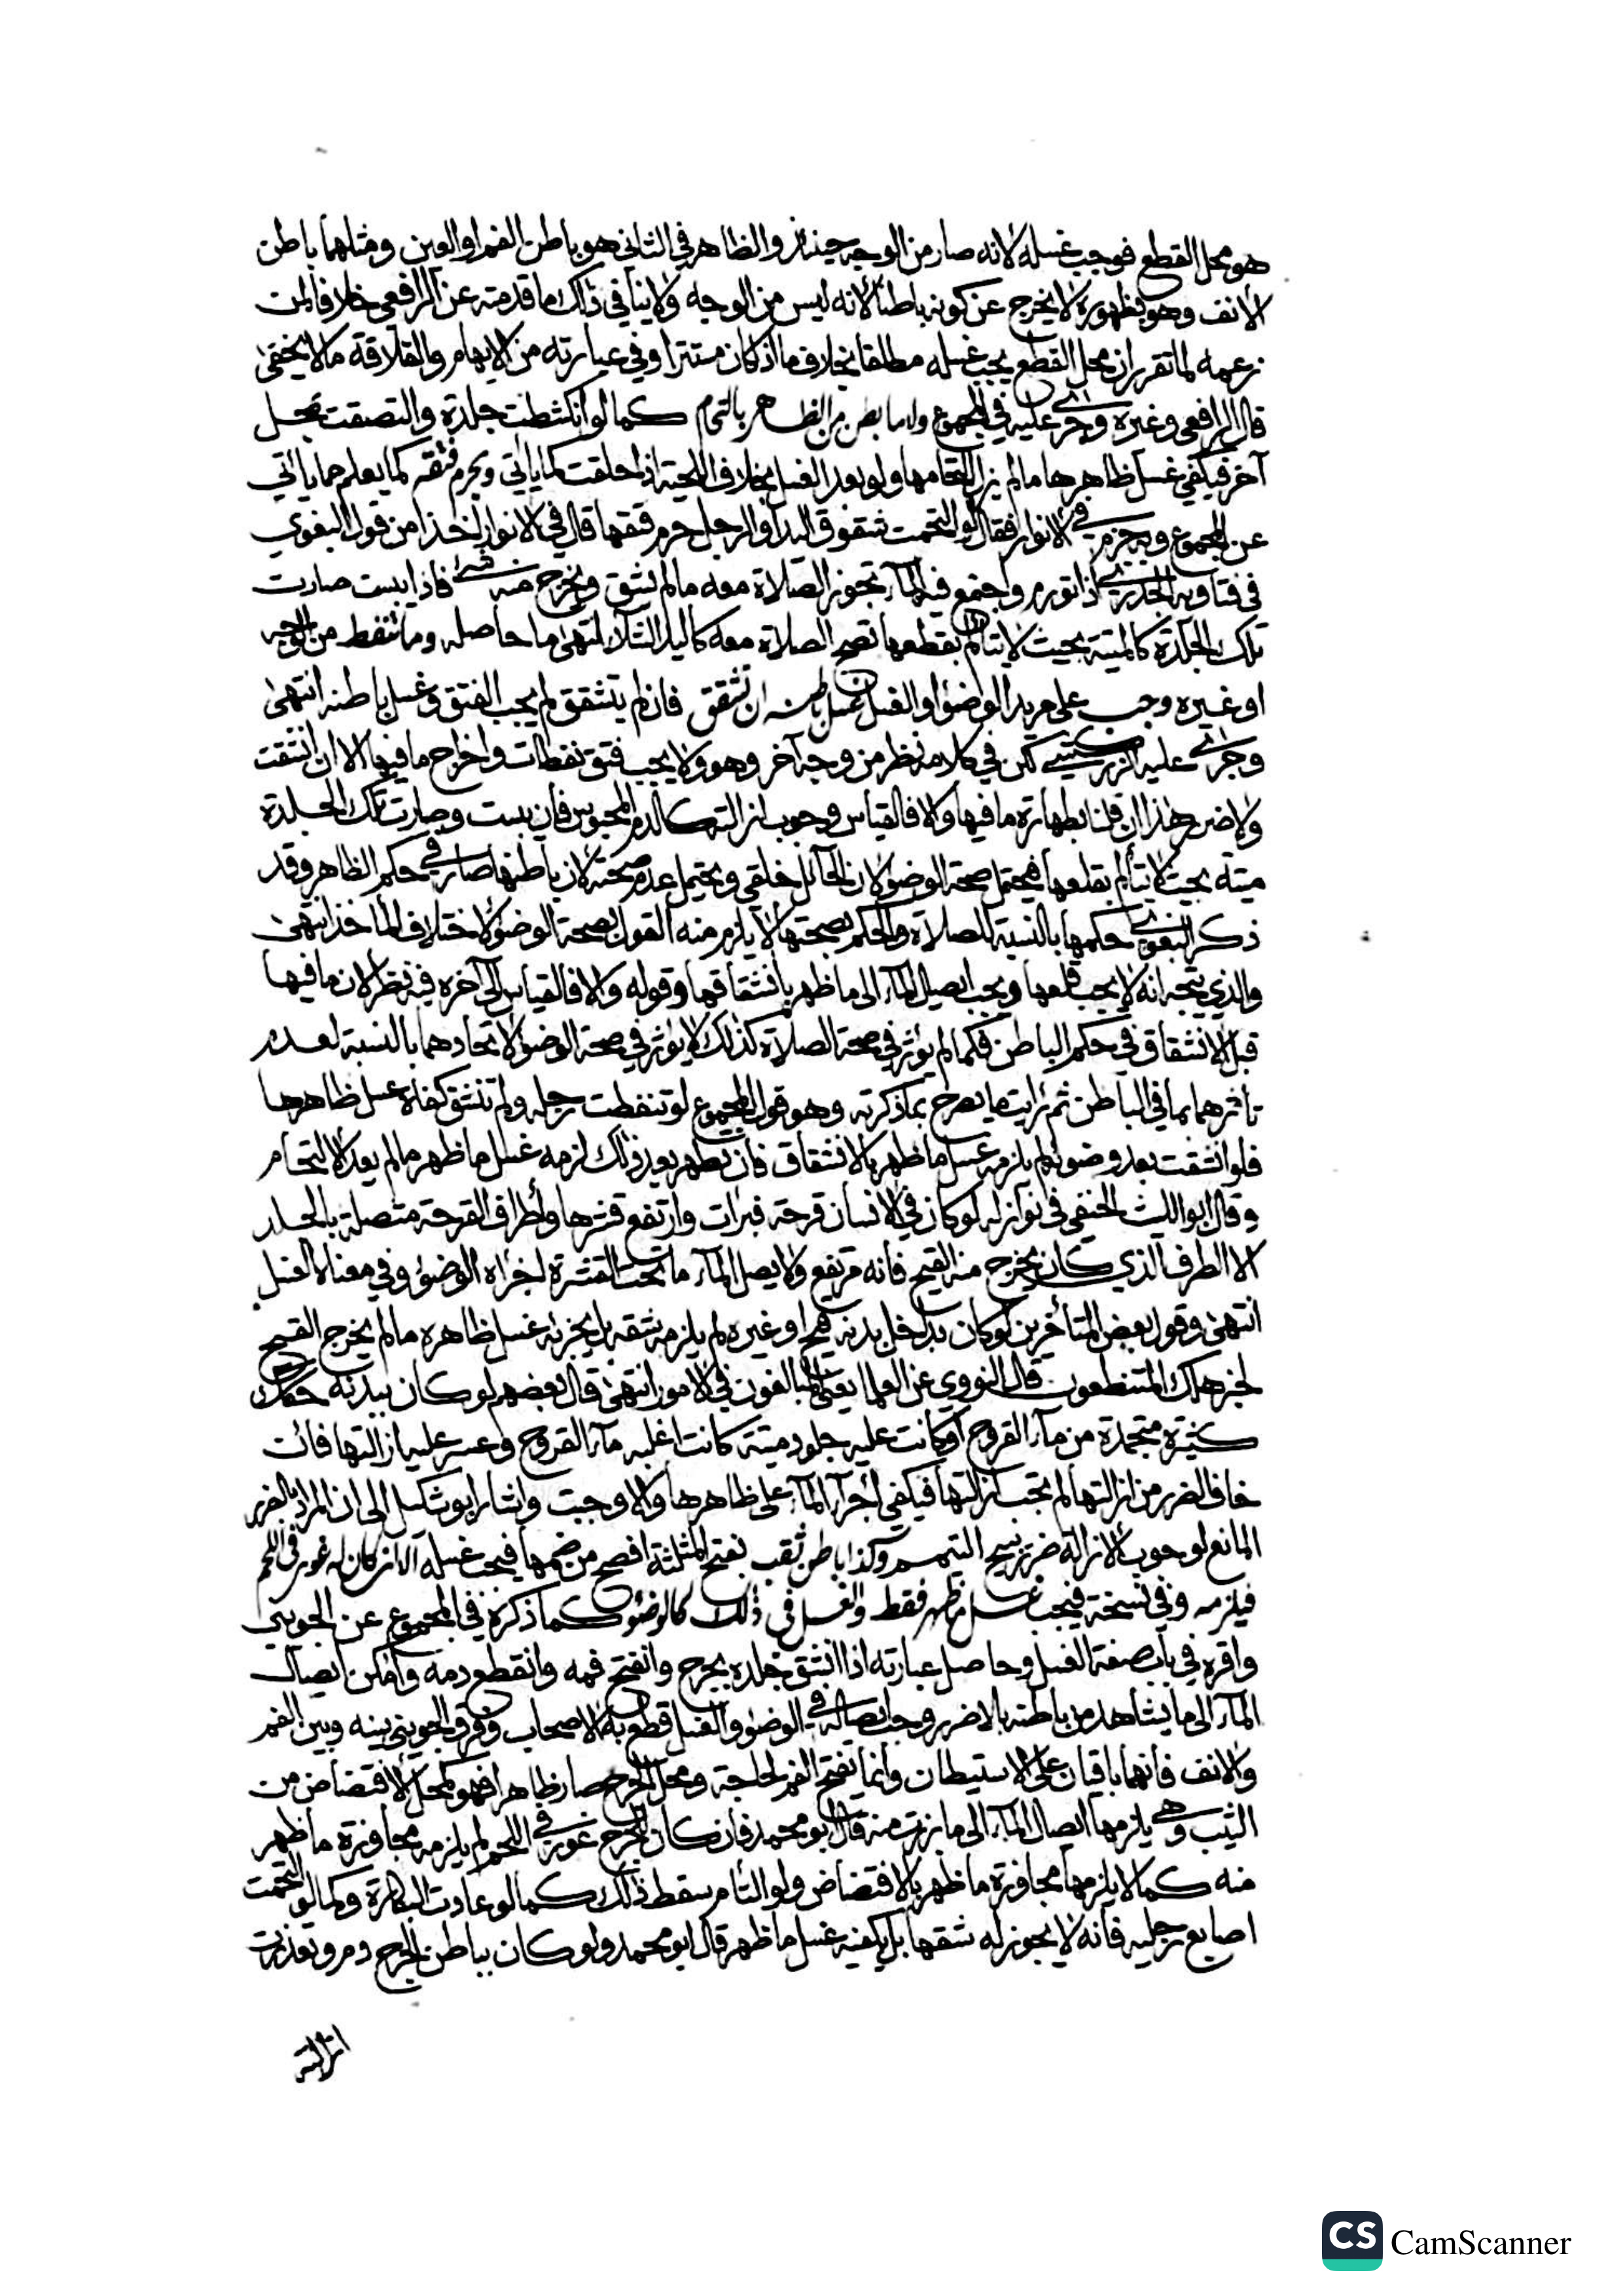 هو محل القطع فوجب غسله لانه صار من الوجه حينئذ والظاهر في الثاني هو باطن الفم او العين ومثلهما باطن
الأنف وهو بظهوره لا يخرج عن كونه باطنا لأنه ليس من الوجه ولا ينافي ذلك ما قدمته عن الرافعي خلافا لمن
زعمه لما تقرر ان محل القطع يجب غسله مطلقا بخلاف ما اذا كان مستترا وفي عبارته من الايهام والقلاقة ما لا يخفى
قال الرافعي وغيره وجرى عليه في المجموع واما بطن من الظاهر بالتحام كما لو انكشطت جلدة والتصقت بمحل
آخر فيكفي غسل ظاهرها ما لم يزل التحامها ولو بعد الغسل بخلاف اللحية اذا حلقت كما يأتي ويحرم فتقه كما يعلم مما يأتي
عن المجموع وبه جزم في الأنوار فقال لو التحمت شقوق اليد او الرجل حرم فتقها قال في الانوار اخذا من قول البغوي
في فتاويه الجدري اذا تورم واجتمع فيه المآء تجوز الصلاة معه ما لم ينشق ويخرج منه شيء فاذا يبست صارت
تلك الجلدة كالميتة بحيث لا يتألم بقطعها تصح الصلاة معه كاليد الشلاء انتهى ما حاصله وما تنفط من الوجه
او غيره وجب على مريد الوضؤ او الغسل غسل باطنه ان تشقق فان لم يتشقق لم يجب الفتق وغسل باطنه انتهى
وجرى عليه الزركشي لكن في كلامه نظر من وجه آخر وهو ولا يجب فتق نفطات واخراج ما فيها الا ان انشقت
ولا ضرر هذا ان قلنا بطهارة ما فيها والا فالقياس وجوب ازالته كالدم المحبوس فان يبست وصارت تلك الجلدة
ميتة بحيث لا يتألم بقلعها فيحتمل صحة الوضؤ لان الحآئل خلقي ويحتمل عدم صحته لان باطنها صار في حكم الظاهر وقد
ذكر البغوي حكمها بالنسبة للصلاة والحكم بصحتها لا يلزم منه القول بصحة الوضؤ لاختلاف المأخذ انتهى
والذي يتجه انه لا يجب قلعها ويجب ايصال المآء الى ما ظهر بانشقاقها وقوله والا فالقياس الى آخره فيه نظر لان ما فيها
قبل الانشقاق في حكم الباطن فكما لم يؤثر في صحة الصلاة كذلك لا يؤثر في صحة الوضؤ لاتحادهما بالنسبة لعدم
تأثرهما بما في الباطن ثم رأيت ما يصرح بما ذكرته وهو قول المجموع لو تنفطت رجله ولم تنشق كفاه غسل ظاهرها
فلو انشقت بعد وضوئه لم يلزمه غسل ما ظهر بالانشقاق فان تطهر بعد ذلك لزمه غسل ما ظهر ما لم يعد الالتحام
وقال ابو الليث الحنفي في نوازله لو كان في الانسان قرحة فبرات وارتفع قشرها واطراف القرحة متصلة بالجلد
الا الطرف الذي كان يخرج منه القيح فانه مرتفع ولا يصل المآء ما تحت القشرة اجزاه الوضؤ وفي معناه الغسل
انتهى وقول بعض المتأخرين لو كان بداخل بدنه قيح او غيره لم يلزمه شقه بل يجزئه غسل ظاهره ما لم يخرج القيح
لخبر هلك المتنطعون قال النووي عن العلما يعنى المبالغون في الامور انتهى قال بعضهم لو كان ببدنه حكاك
كثيرة متجمدة من مآء القروح او كانت عليه جلود ميتة كانت اغلبه مآء القروح وعسر عليه ازالتها فان
خاف الضرر من ازالتها لم تجب ازالتها فيكفي اجرآء المآء على ظاهرها والا وجبت واشار ابو شكيل الى ان المراد بالضرر
المانع لوجوب الازالة ضرر يبيح التيمم وكذا باطن ثقب بفتح المثلثة افصح من ضمها فيجب غسله الا ان كان له غور في اللحم
فيلزمه وفي نسخة فيجب غسل ما ظهر فقط والغسل في ذلك كالوضوء كما ذكره في المجموع عن الجويني
واقره في باب صفة الغسل وحاصل عبارته اذا انشق جلده بجرح وانفتح فمه وانقطع دمه وامكن ايصال
المآء الى ما يشاهد من باطنه بلا ضرر وجب ايصاله في الوضؤ والغسل قطع به الاصحاب وفرق الجويني بينه وبين الفم
والانف فانهما باقيان على الاستبطان وانما يفتح الفم لحاجة ومحل الجرح صار ظاهرا فهو كمحل الاقتضاض من
الثيب وهي يلزمها ايصال المآء الى ما برز منه قال ابو محمد فان كان للجرح غور في اللحم لم يلزمه مجاوزة ما ظهر
منه كما لا يلزمها مجاوزة ما ظهر بالاقتضاض ولو التأم سقط ذلك كما لو عادت البكارة وكما لو التحمت
اصابع رجليه فانه لا يجوز له شقها بل يكفيه غسل ما ظهر قال ابو محمد ولو كان بباطن الجرح دم وتعذرت
ازالته
CS CamScanner